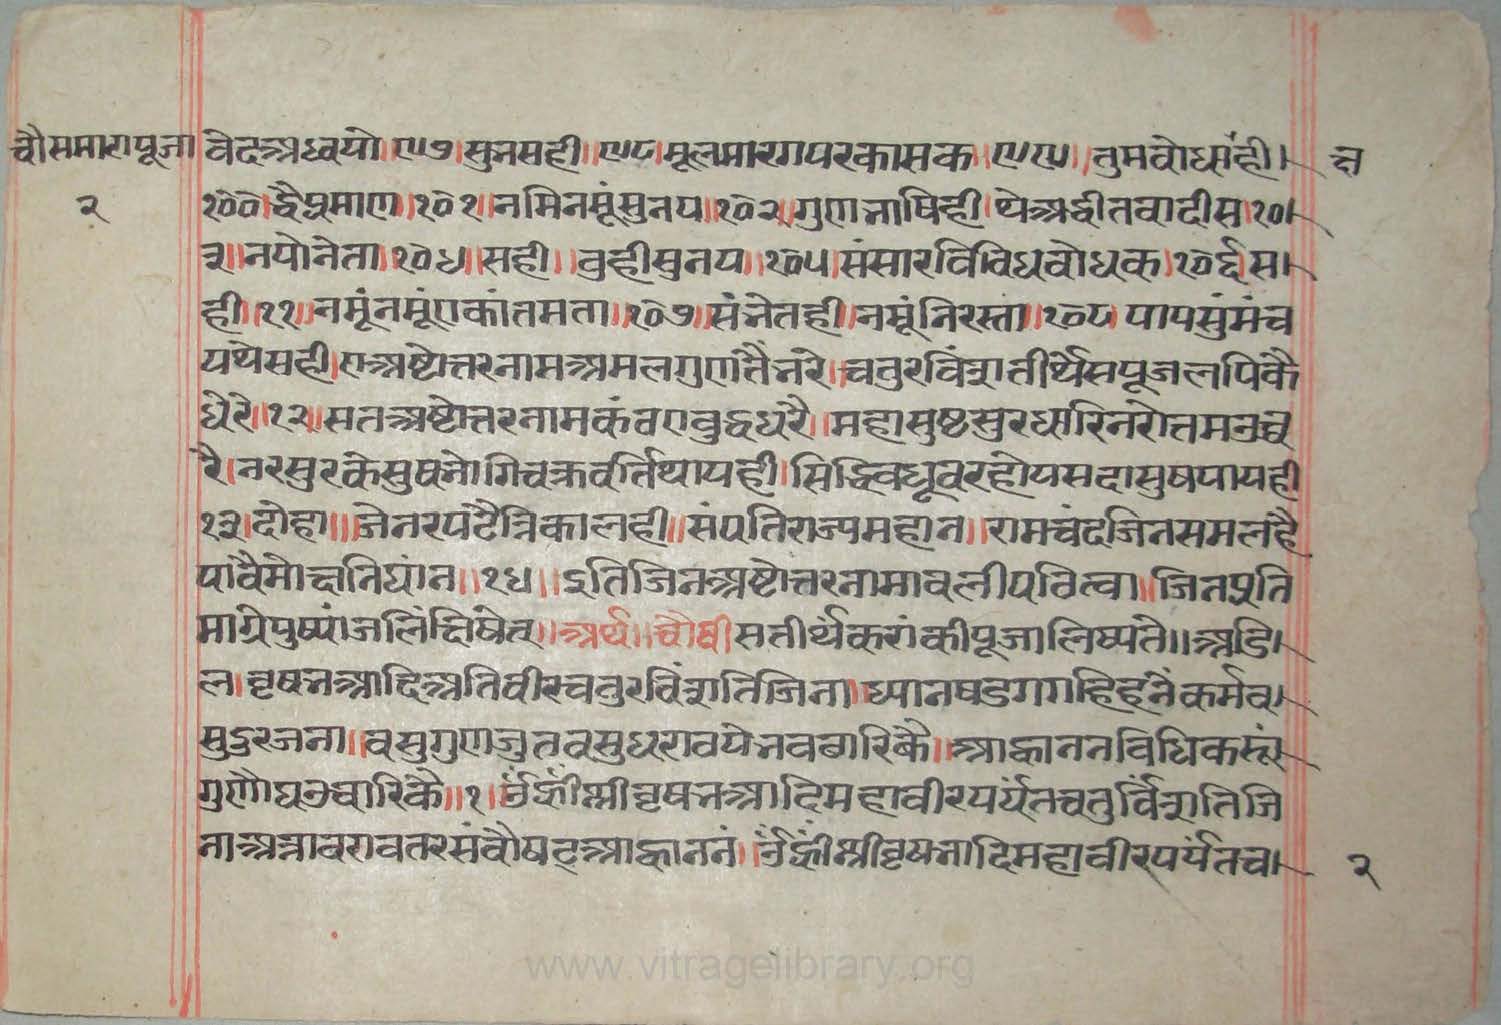 चौसमारापूजा वेदअध्वयो।।९७।सुनसही।।९८।मूलमारगपरकासक।।९९।।तुमबोधांही। 
२ १००।द्वैप्रमाण।।१०१।।नमिनमूंसुनप।।१०२।।गुणभाषिही।थेअद्वीतवादीस।१०।
३।।नयोनेता।।१०४।।सही।।वुहीसुनय।।१०५।संसारविविधबोधक।१०६।स।
ही।।११।।नमूंनमूंएकांतमता।।१०७।।संनेतही।नमूंनिरस्ता।।१०८।पापसुंमंच
पथेसही।एअष्टोत्तरनामअमलगुणतैंनरे।।चतुरविंशतीर्थेसपूजलपिकै
धरे।।१२।।सतअष्टोत्तरनामकंवणबुद्धधरै।।महासुष्ठसुरधारिनरोत्तमउच्च
रै।नरसुरकेसुषभोगिचक्रवर्तिथायही।सिद्धिवधूवरहोयसदासुषपायही
१३।दोहा।।।जेनरपटैत्रिकालही।।संपतिराज्यमहान।।रामचंदजिनसमलहै
पांवैमोक्षनिधांन।।१४।।इतिजिनअष्टोत्तरनामावलीपवित्वा।।जिनप्रति
माग्रेपुष्पांजलिंक्षिपेत्।।अर्थ।।चौबीसतीर्थंकरांकीपूजालिष्यते।।अडि।
ल।वृषभआदिअतिवीरचतुरविंशतिजिना।ध्यानषडगगहिहनेंकर्मव।
सुदुरजना।।वसुगुणजुतवसुधरावयेनवबारिकै।।आह्वाननविधिकरूं।
गुणौघउचारिकैं।।१।ॐह्रींश्रीवृषभआदिमहावीरपर्यंतचतुर्विंशतिजि
नाअत्रावरावतरसंवौषट्आह्वाननं।।ॐह्रींश्रीवृषभादिमहावीरपर्यंतच। २
www.vitragelibrary.org